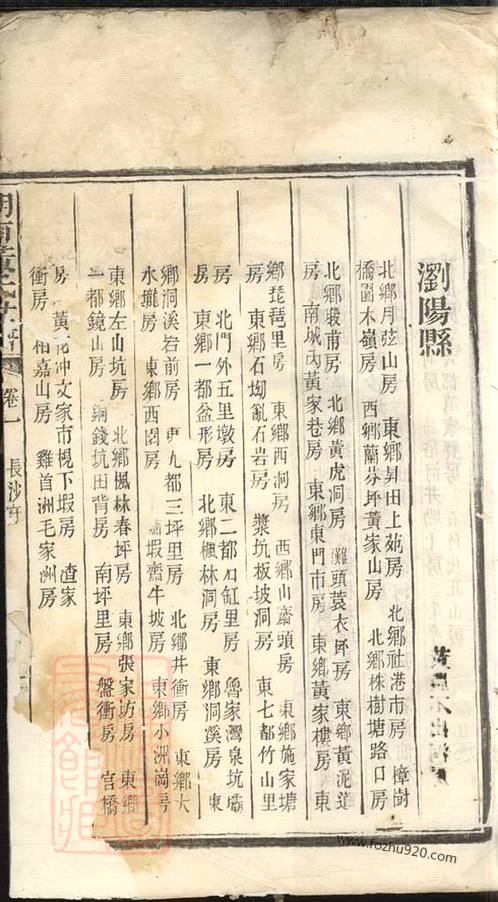 瀏陽縣
北鄉月弦山房　東鄉昇田上苑房　北鄉社港市房　樟樹
橋園木嶺房　西鄉蘭芬坪黃家山房　北鄉株樹塘路口房
北鄉塅甫房　北鄉黃虎洞房　灘頭蓑衣房　東鄉黃泥道
房　南城內黃家巷房　東鄉東門市房　東鄉黃家樓房　東
鄉琵琶里房　東鄉西洞房　西鄉山齋頭房　東鄉施家塘
房　東鄉石坳亂石岩房　漿坑板坡洞房　東七都竹山里
房　北門外五里墩房　東二都石缸里房　魯家灣泉坑壩
房　東鄉一都盆形房　北鄉楓林洞房　東鄉洞溪房　東
鄉洞溪岩前房　東九都三坪里房　北鄉井衝房　東鄉大
水壠房　東鄉西閣房　瀟瑕齋牛坡房　東鄉小洲崗房
東鄉左山坑房　北鄉楓林春坪房　東鄉張家坊房　東鄉
一都鏡山房　銅錢坑田背房　南坪里房　盤衝房　官橋
房　黃花沖文家市梘下瑕房　渣家
衝房　柏嘉山房　雞首洲毛家洲房
卷一　長沙府
www.fozhu920.com